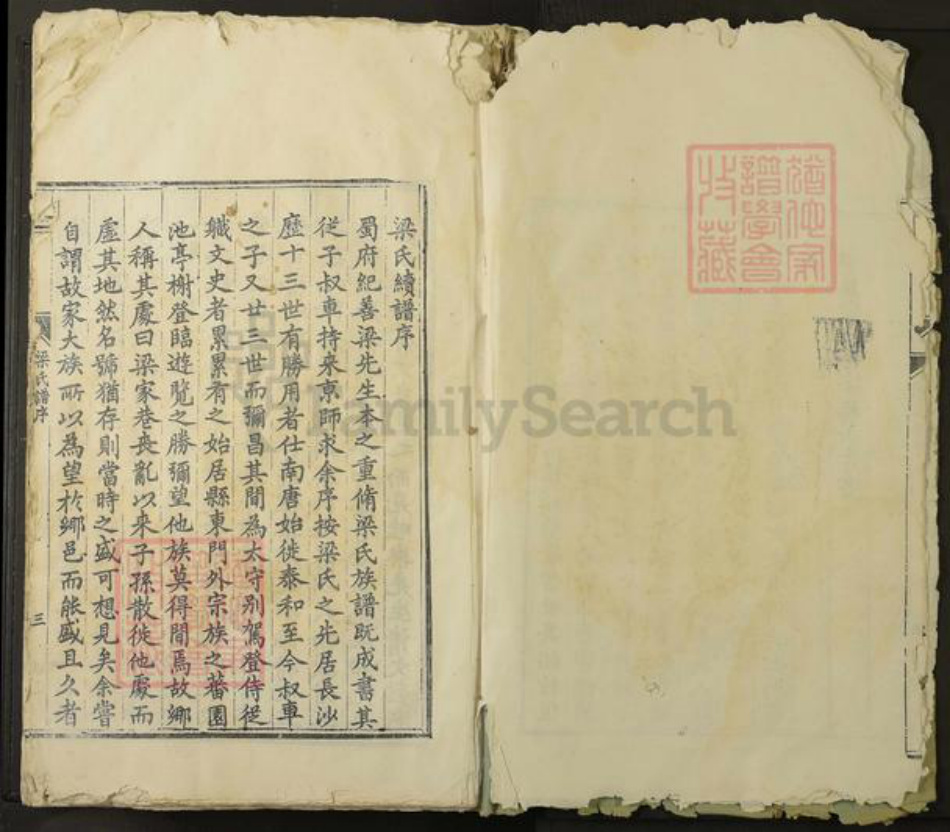 梁氏續譜序
蜀府紀善梁先生本之重脩梁氏族譜既成書其
從子叔車持來京師求余序按梁氏之先居長沙
歷十三世有勝用者仕南唐始徙泰和至今叔車
之子又廿三世而彌昌其間為太守別駕登侍從
職文史者累累有之始居縣東門外宗族之蕃園
池亭榭登臨遊覽之勝彌望他族莫得間焉故鄉
人稱其處曰梁家巷喪亂以来子孫散徙他處而
虛其地然名號猶存則當時之盛可想見矣余嘗
自謂故家大族所以為望於鄉邑而能盛且久者
梁氏譜序
三
FamilySearch
譜學會
收藏